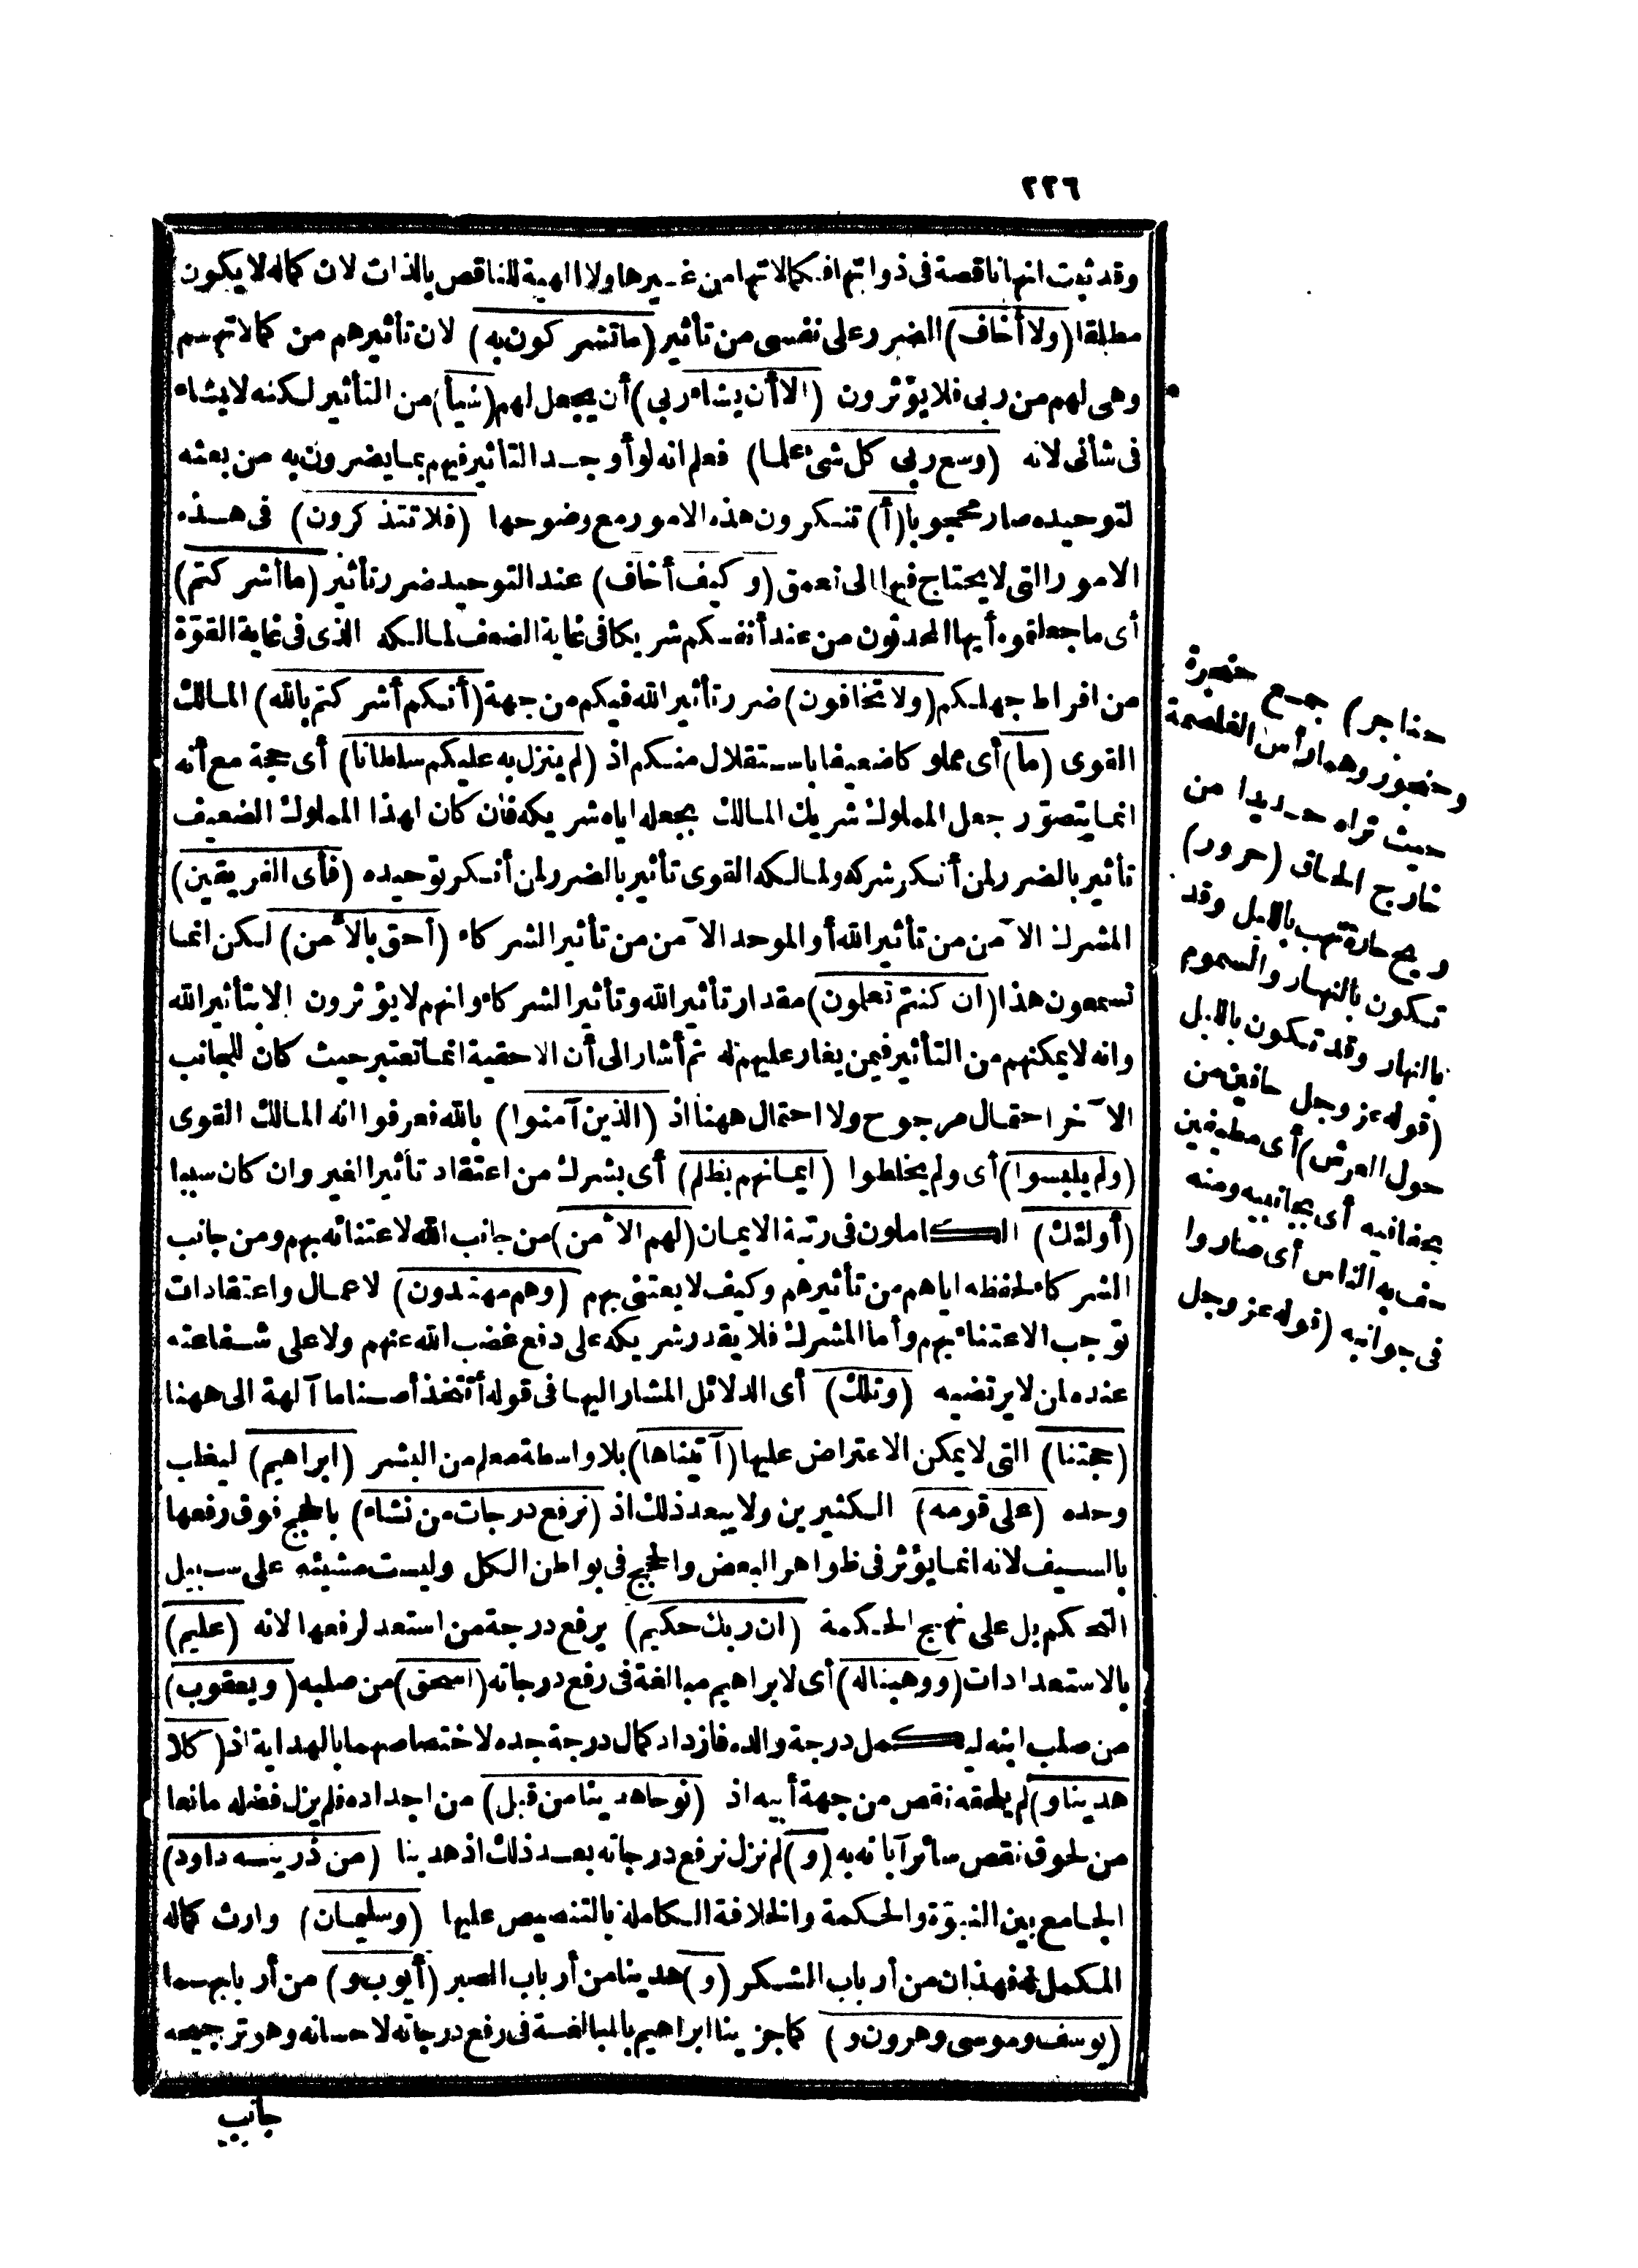 ٢٢٦
وقد ثبت انها ناقصة فى ذواتها فكمالاتها من غيرها ولا الهية للناقص بالذات لان كماله لا يكون
مطلقا (ولا أخاف) الضرر على نفسى من تأثير (ما تشركون به) لان تأثيرهم من كمالاتهم
وهى لهم من ربى فلا يؤثرون (الا أن يشاء ربي) أن يجعل لهم (شيأ) من التأثير لكنه لا يشاء
فى شأنى لانه (وسع ربى كل شئ علما) فعلم انه لو أوجد التأثير فيهم بما يضرون به من بعثه
لتوحيده صار محجوبا (أ) تنكرون هذه الامور مع وضوحها (فلا تتذكرون) فى هذه
الامور التى لا يحتاج فيها الى تعمق (وكيف أخاف) عند التوحيد ضرر تأثير (ما أشركتم)
أى ما جعلتموه أيها المحدثون من عند أنفسكم شريكا فى غاية الضعف لمالكه الذى فى غاية القوّة
من افراط جهلكم (ولا تخافون) ضرر تأثير الله فيكم من جهة (أنكم أشركتم بالله) المالك
القوى (ما) أى مملوكا ضعيفا باستقلال منكم اذ (لم ينزل به عليكم سلطانا) أى حجة مع أنه
انما يتصوّر جعل المملوك شريك المالك بجعله اياه شريكه فان كان لهذا المملوك الضعيف
تأثير بالضرر لمن أنكر شركه ولمالكه القوى تأثير بالضرر لمن أنكر توحيده (فأى الفريقين)
المشرك الآمن من تأثير الله أو الموحد الآمن من تأثير الشركاء (أحق بالأمن) لكن انما
تسمعون هذا (ان كنتم تعلمون) مقدار تأثير الله وتأثير الشركاء وانهم لا يؤثرون الا بتأثير الله
وانه لا يمكنهم من التأثير فيمن يغار عليهم له ثم أشار الى أن الاحقية انما تعتبر حيث كان للجانب
الآخر احتمال مرجوح ولا احتمال ههنا اذ (الذين آمنوا) بالله فعرفوا انه المالك القوى
(ولم يلبسوا) أى ولم يخلطوا (ايمانهم بظلم) أى بشرك من اعتقاد تأثير الغير وان كان سببا
(أولئك) الكاملون فى رتبة الايمان (لهم الأمن) من جانب الله لاعتنائه بهم ومن جانب
الشركاء لحفظه اياهم من تأثيرهم وكيف لا يعتنى بهم (وهم مهتدون) لاعمال واعتقادات
توجب الاعتناء بهم وأما المشرك فلا يقدر شريكه على دفع غضب الله عنهم ولا على شفاعته
عنده لمن لا يرتضيه (وتلك) أى الدلائل المشار اليها فى قوله أتتخذ أصناما آلهة الى ههنا
(حجتنا) التى لا يمكن الاعتراض عليها (آتيناها) بلا واسطة معلم من البشر (ابراهيم) ليغلب
وحده (على قومه) الكثيرين ولا يبعد ذلك اذ (نرفع درجات من نشاء) بالحجج فوق رفعها
بالسيف لانه انما يؤثر فى ظواهر البعض والحجج فى بواطن الكل وليست مشيئته على سبيل
التحكم بل على نهج الحكمة (ان ربك حكيم) يرفع درجة من استعد لرفعها لانه (عليم)
بالاستعدادات (ووهبنا له) أى لابراهيم مبالغة فى رفع درجاته (اسحق) من صلبه (ويعقوب)
من صلب ابنه ليكمل درجة والده فازداد كمال درجة جده لاختصاصهما بالهداية اذ (كلا
هدينا و) لم يلحقه نقص من جهة أبيه اذ (نوحا هدينا من قبل) من اجداده فلم يزل فضله مانعا
من لحوق نقص سائر آبائه به (و) لم نزل نرفع درجاته بعد ذلك اذ هدينا (من ذريته داود)
الجامع بين النبوّة والحكمة والخلافة الكاملة بالتنصيص عليها (وسليمان) وارث كماله
المكمل له فهذان من أرباب الشكر (و) هدينا من أرباب الصبر (أيوب و) من أربابهما
(يوسف وموسى وهرون و) كما جزينا ابراهيم بالمبالغة فى رفع درجاته لاحسانه وهو ترجيحه
جانب
حناجر) جمع حنجرة
وحنجور وهما رأس الغلصمة
حيث تراه حديدا من
خارج الحلق (حرور)
ريح حارة تهب بالليل وقد
تكون بالنهار والسموم
بالنهار وقد تكون بالليل
(قوله عز وجل حافين من
حول العرش) أى مطيفين
بحفافيه أى بجانبيه ومنه
حف به الناس أى صاروا
فى جوانبه (قوله عز وجل